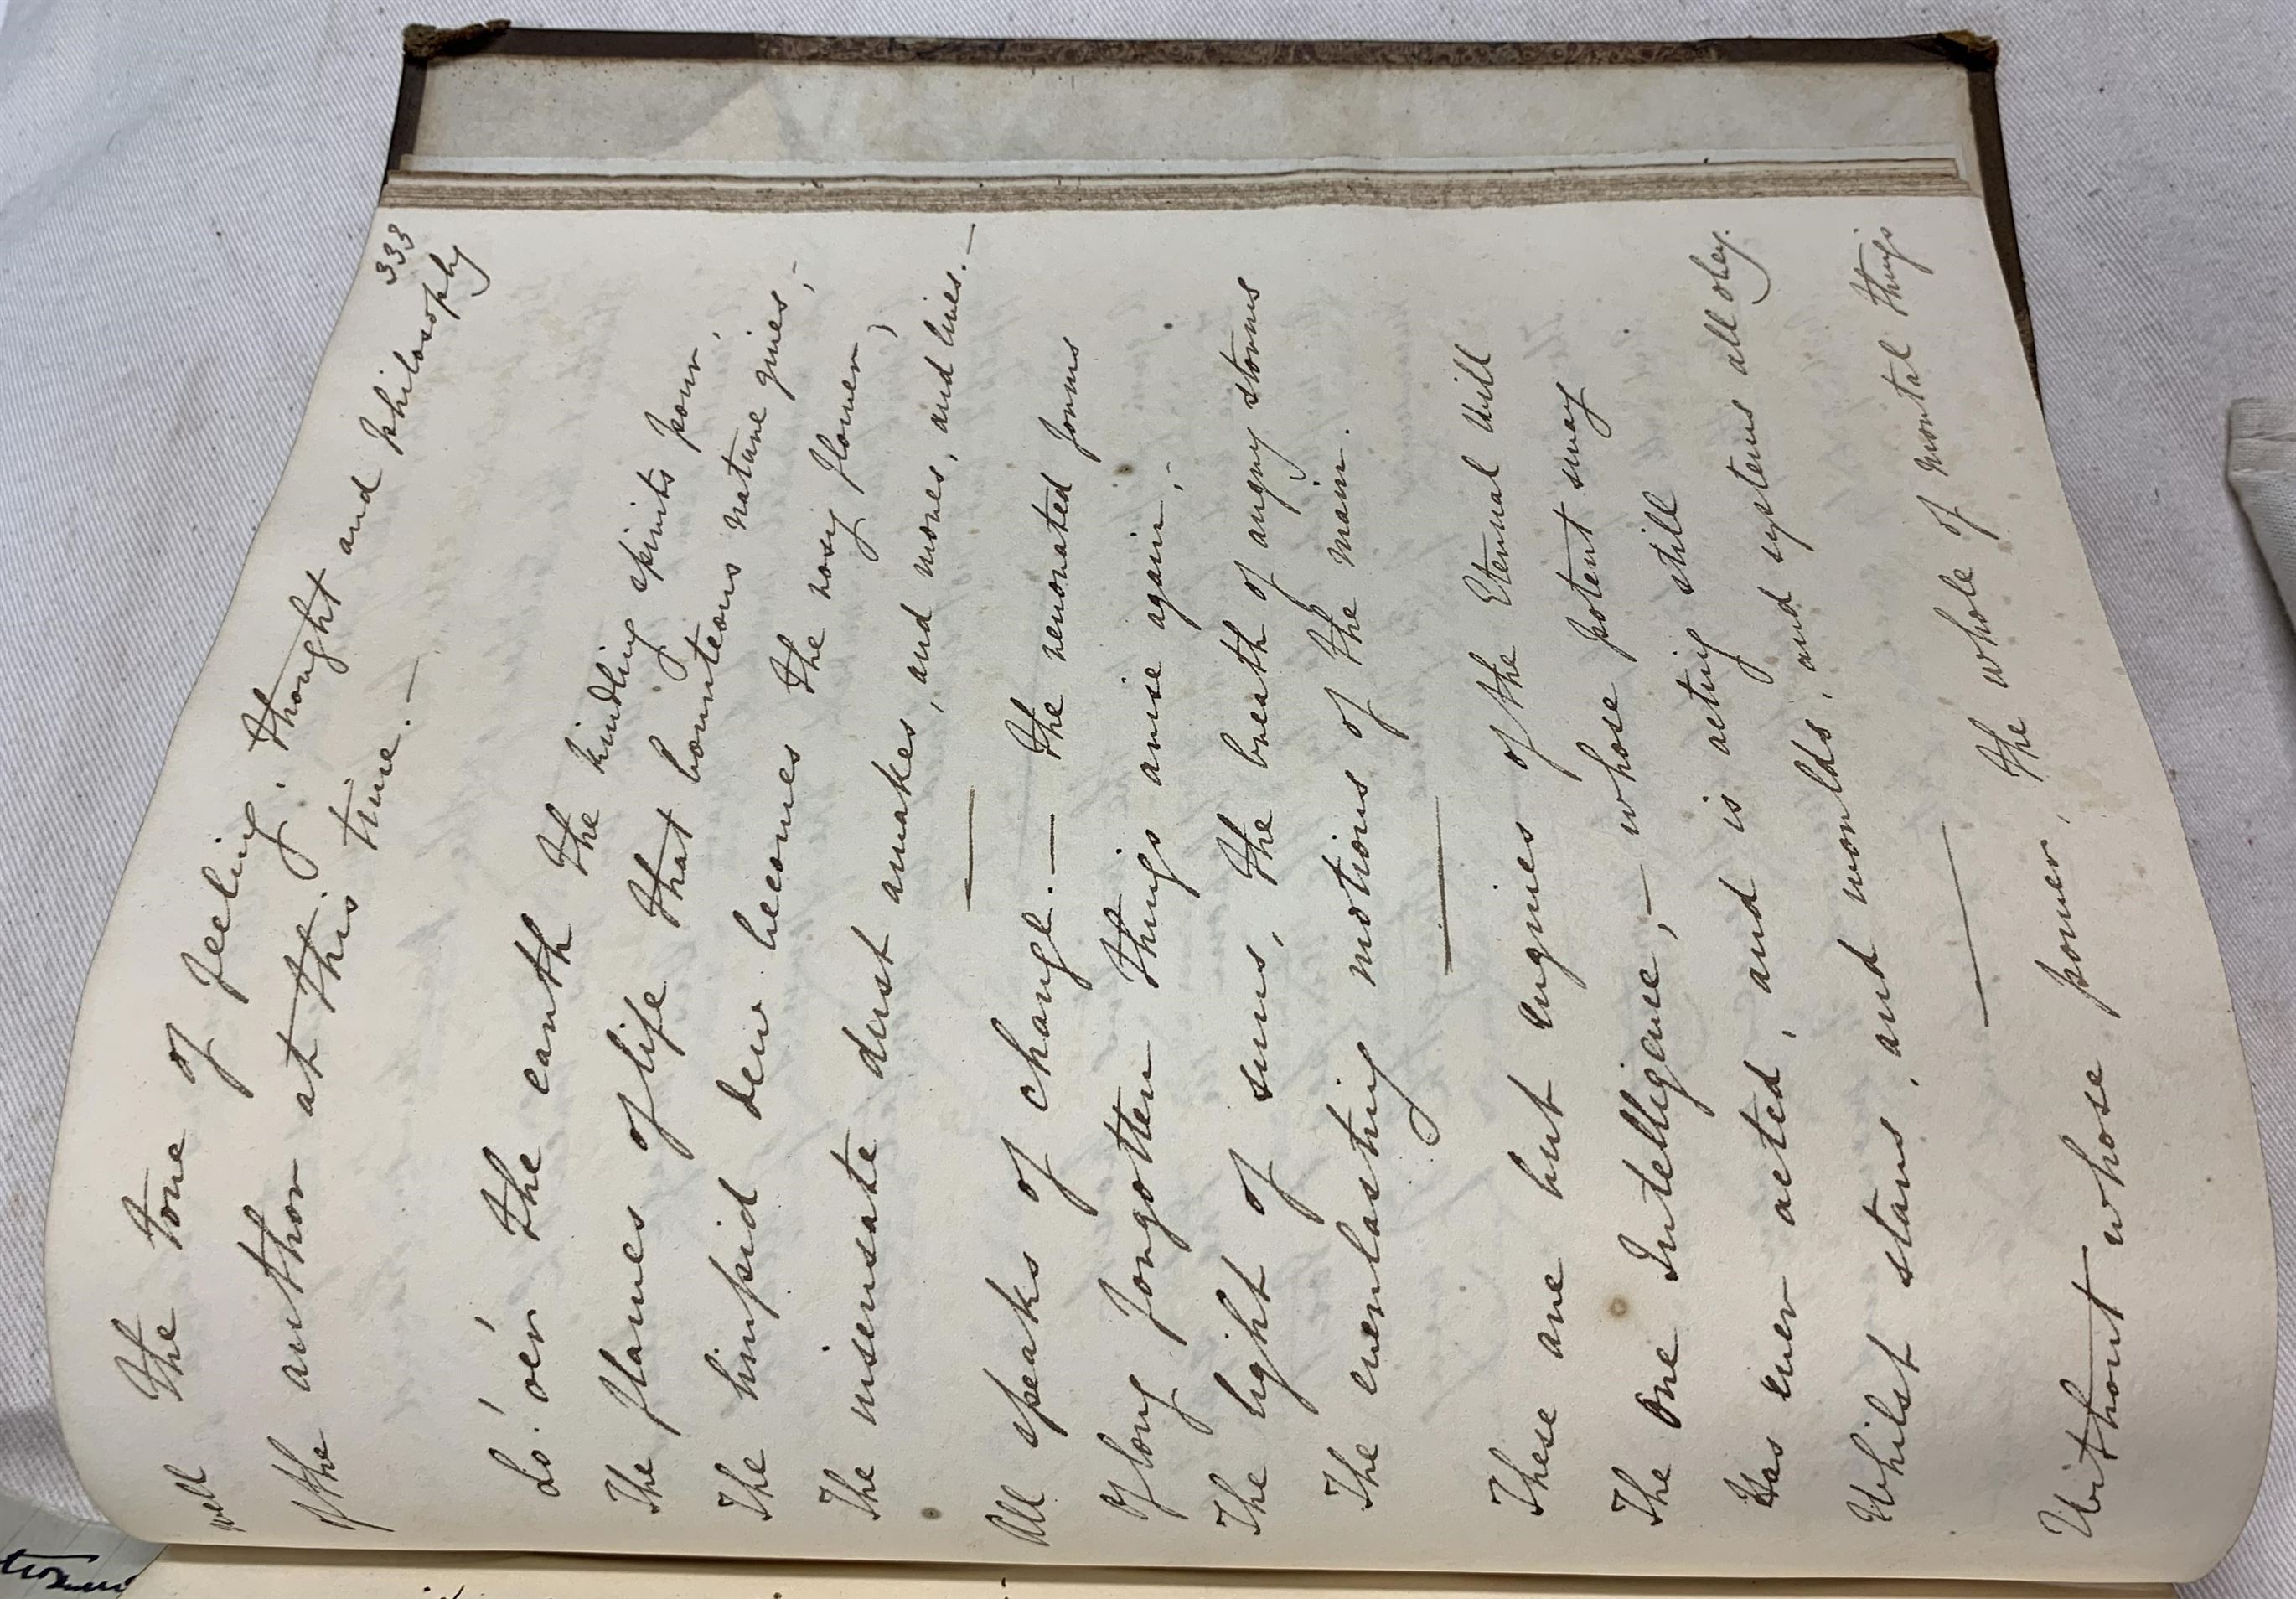 333
well the tone of feeling, thought and philosophy
of the author at this time. —
Lo! o'er the earth the kindling spirits pour,
The flames of life that bounteous nature gives; —
The limpid dew becomes the rosy flower,
The insensate dust awakes, and moves, and lives. —
All speaks of change. — the renovated forms
Of long forgotten things arise again; —
The light of suns, the breath of angry storms
The everlasting motions of the main.
These are but engines of the Eternal Will
The One Intelligence, — whose potent sway
Has ever acted, and is acting still
Whilst stars, and worlds, and systems all obey.
Without whose power, the whole of mortal things